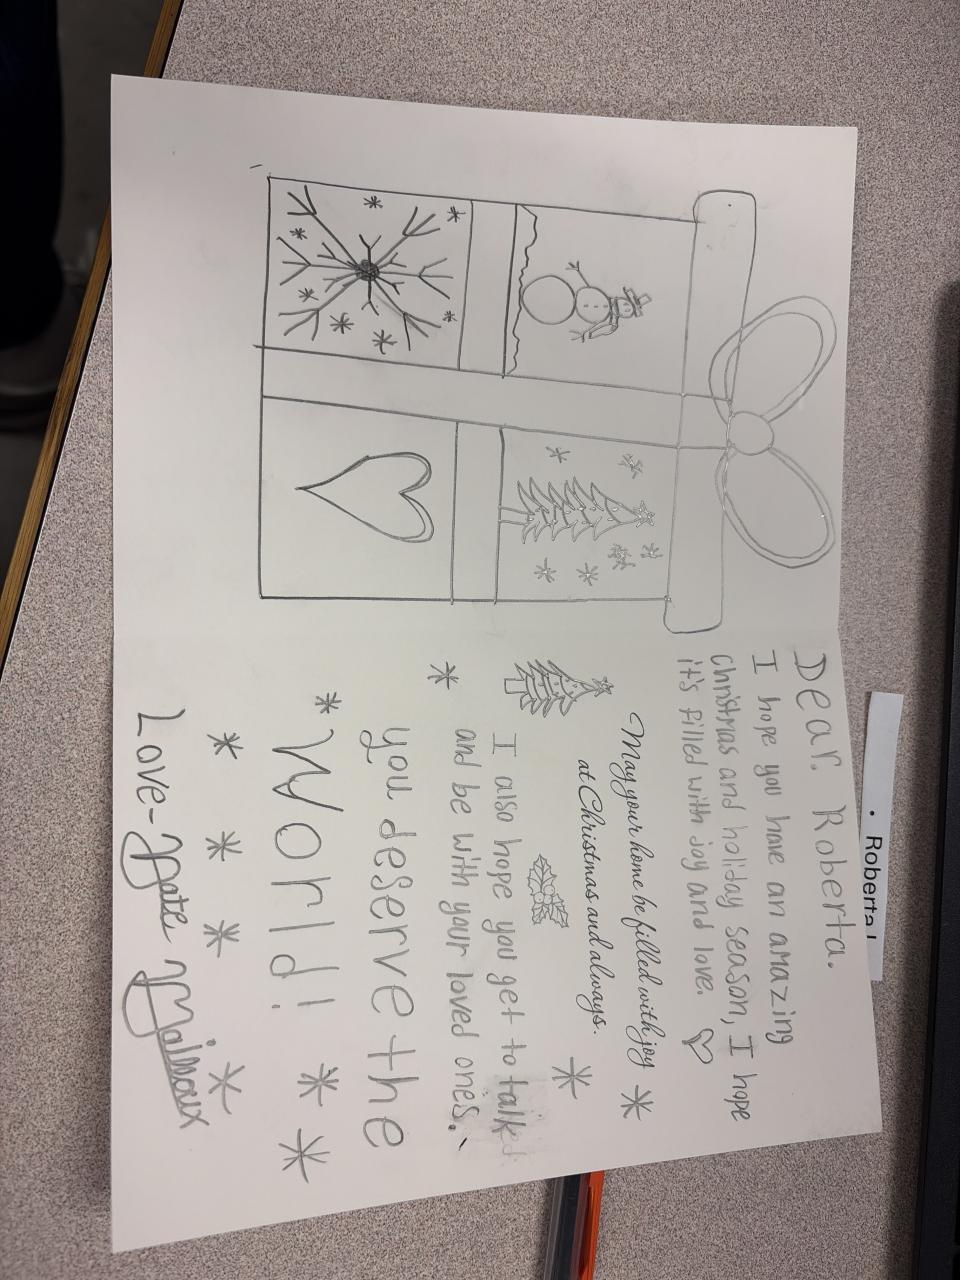 • Roberta
Dear. Roberta.
I hope you have an amazing
Christmas and holiday season, I hope
it's filled with joy and love.
May your home be filled with joy
at Christmas and always.
I also hope you get to talk
and be with your loved ones.
you deserve the
World!
Love-